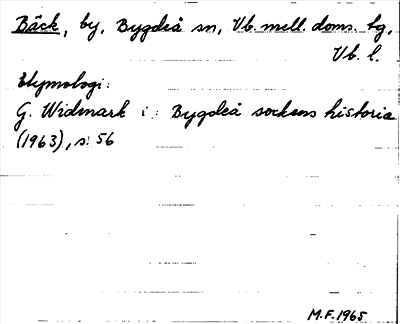 Bäck, by, Bygdeå sn, Vb. mell. doms. tg,
Vb. l.
Etymologi:
G. Widmark i: Bygdeå sockens historia
(1963), s. 56
M.F. 1965